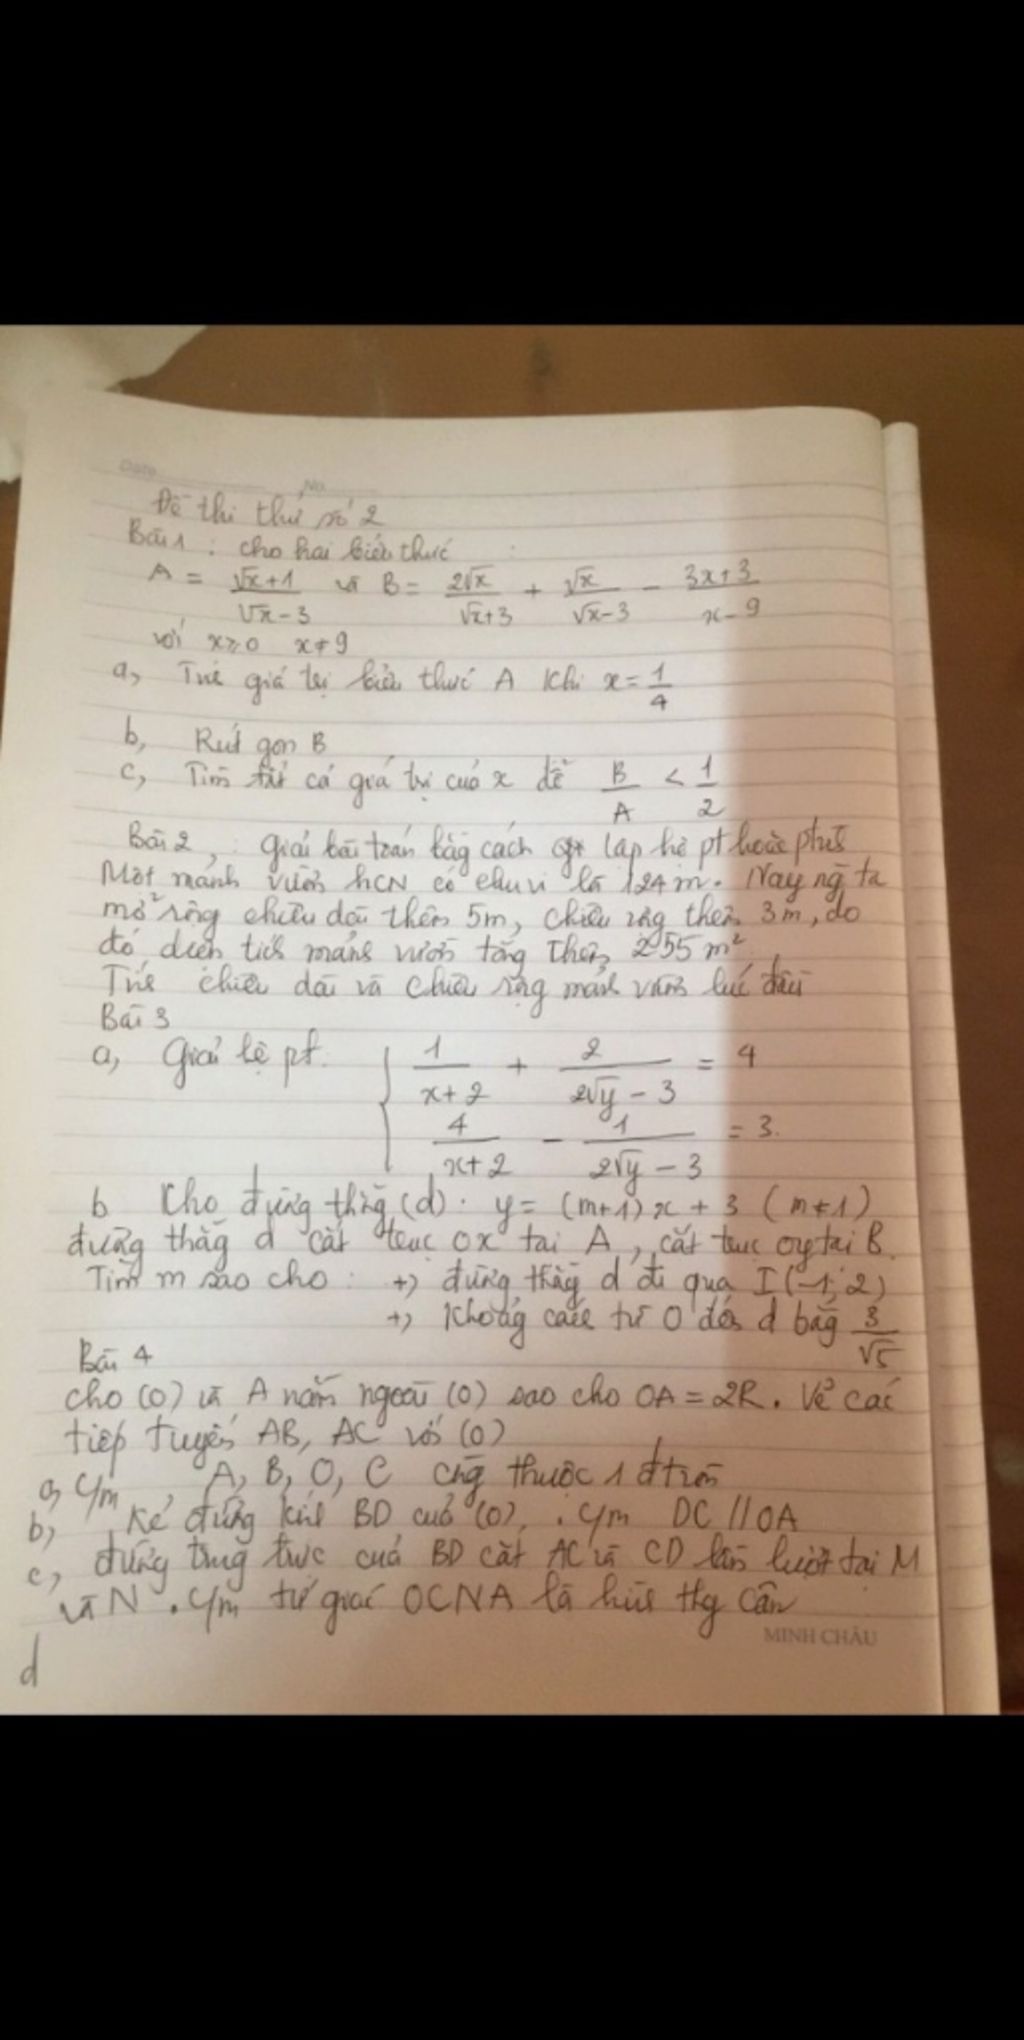 Date No.
Đề thi thử số 2
Bài 1 : cho hai biểu thức :
A = (√x+1)/(√x-3) và B = 2√x/(√x+3) + √x/(√x-3) - (3x+3)/(x-9)
với x≥0 x≠9
a, Tính giá trị biểu thức A khi x = 1/4
b, Rút gọn B
c, Tìm tất cả giá trị của x để B/A < 1/2
Bài 2, : giải bài toán bằg cách lập hệ pt hoặc
Một mảnh vườn hCN có chu vi là 124 m. Nay ng ta
mở rộng chiều dài thêm 5m, chiều rộng thêm 3m, do
đó diện tích mảnh vườn tăng thêm 255 m²
Tính chiều dài và chiều rộng mảnh vườn lúc đầu
Bài 3
a, Giải hệ pt. { 1/(x+2) + 2/(2√y - 3) = 4
4/(x+2) - 1/(2√y - 3) = 3.
b Cho đường thẳng (d) : y = (m+1)x + 3 (m≠1)
đường thẳg d cắt trục Ox tại A, cắt trục oy tại B.
Tìm m sao cho : +, đường thẳg d đi qua I(-1; 2)
+, Khoảng cách từ O đến d bằg 3/√5
Bài 4
cho (O) và A nằm ngoài (O) sao cho OA = 2R. Vẽ các
tiếp tuyến AB, AC với (O)
a, c/m, A, B, O, C cùng thuộc 1 đtròn
b, Kẻ đường kính BD của (O), . c/m DC // OA
c, đường trung trực của BD cắt AC và CD lần lượt tại M
và N . c/m tứ giác OCNA là hình thg cân
MINH CHÂU
d